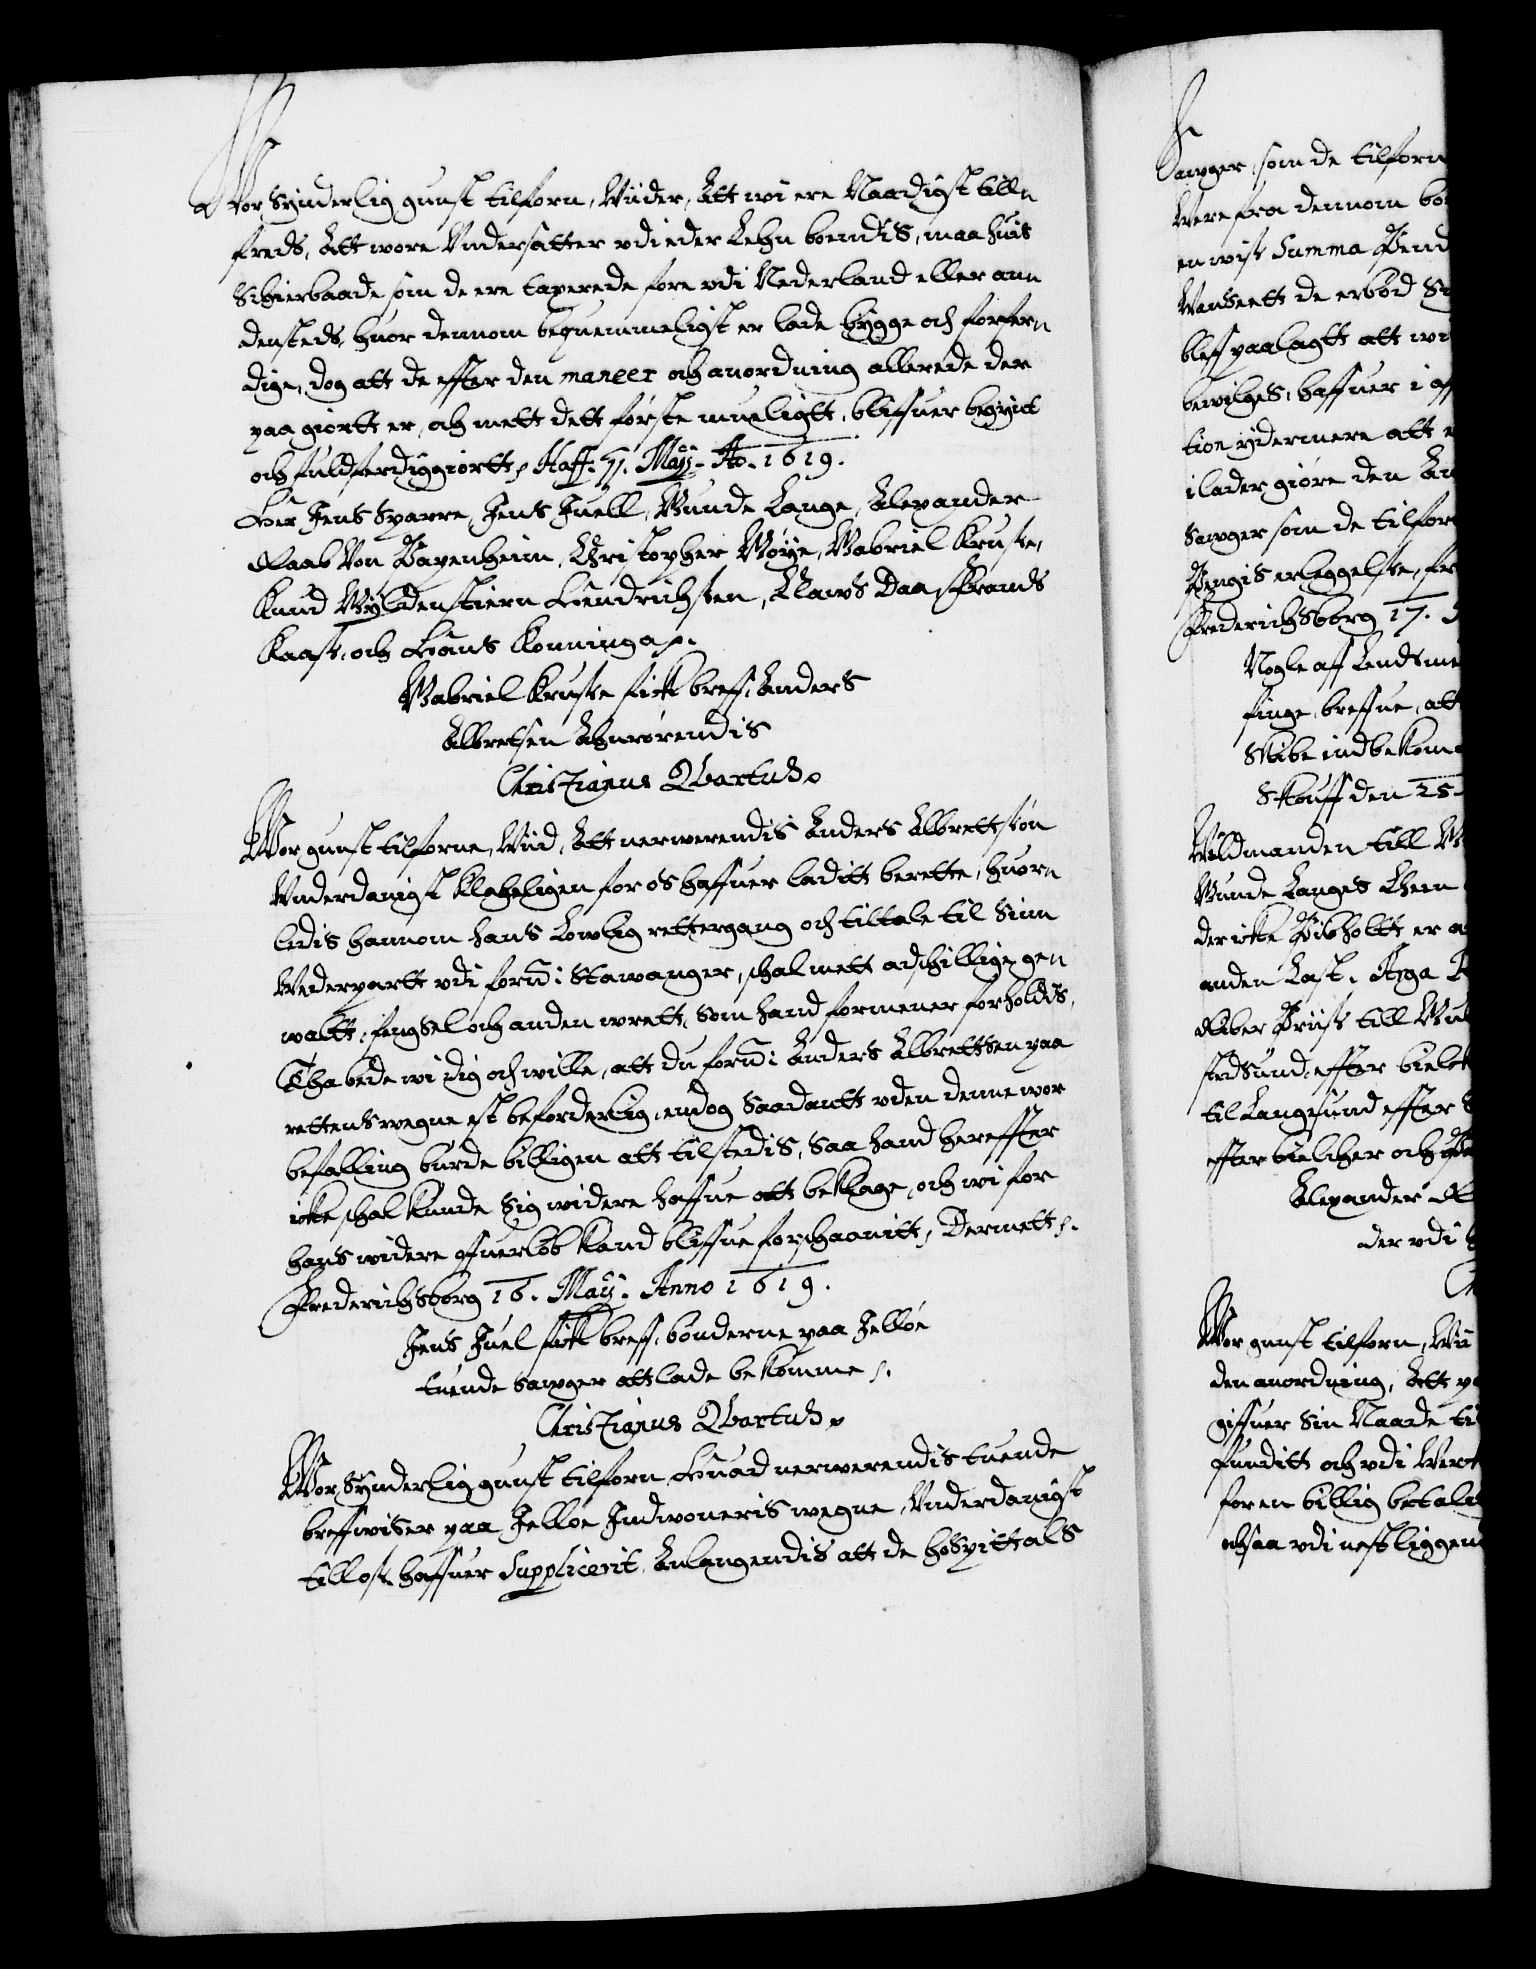 Vor Synderlig gunst tilforn, Wiider, Att wi ere Naadigst till-
freds, Att wore Undersatter vdi eder Lehn boendis, maa huis
Schierbaade som de ere taxerede fore vdi Nederland eller ann
densteds, huor dennom bequemmeligst er lade bygge och forfer-
dige, dog att de effter den maneer och anordning allerede der
paa giortt er, och mett dett første mueligtt, bliffuer begynt
och fuldferdiggiortt, Haff. 11. Maij. Ao. 1619.
Her Jens Sparre, Jens Juell, Gunde Lange, Alexander
Raab Von Papenheim, Christopher Gøye, Gabriel Kruse,
Knud Gyldenstiern Hendrichsen, Claus Daa, Frands
Kaas, och Hans Konning &.
Gabriel Kruse fick breff, Anders
Albretsen Ahnrørendis
Christianus Qvartus
Wor gunst tilforne, Wiid, Att nerwerendis Anders Albrettsøn
Vnderdanigst klageligen for os haffuer laditt berette, huor-
ledis hannom hans Lowlig rettergang och tiltale til Sinn
Wederpartt vdi fornd: Stawanger, schal mett adschillige gen
waltt, fengsel och anden wrett, Som hand formener forholdis,
Tha bede wi dig och wille, att du fornd: Anders Albrettsen paa
rettens wegne est beforderlig, endog Saadantt vden denne wor
befalling burde billigen att tilstedis, Saa hand hereffter
icke schal kunde Sig widere haffue att beklage, och wi for
hans widere offuerløb kand bliffue forschaanitt, Dermett &.
Frederichsborg 16. Maij. Anno 1619.
Jens Juel fick breff, bønderne paa Jelløe
tuende Sauger att lade bekomme &.
Christianus Qvartus
Wor Synderlig gunst tilforn, Huad nerwerendis tuende
breffwiser paa Jelløe Indwoneris wegne, Vnderdanigst
till os, haffuer Supplicerit, Anlangendis att de hospittals
Sauger, som de tilforn
Were fra dennom
en wis Summa
Wanseett de erbød
bleff paalagtt att
bewilges, haffuer i
tion ydermere att
i lader giøre den
Sauger som de tilforn
Pengis erleggelse,
Frederichsborg 17.
Nogle aff Lendsme
finge breffue, att
Skibe indbekom
Skouff den 25.
Wildmanden till
Gunde Langes Lheen
der icke er
anden Last. Arga
Riber till
stedsund, effter
til Langesund effter
effter bielcker och
Alexander
der vdi
Wor gunst tilforn,
den anordning, Att
giffuer Sin Naade
funditt och vdi
for en billig betaling
ochsaa vdi nest liggen